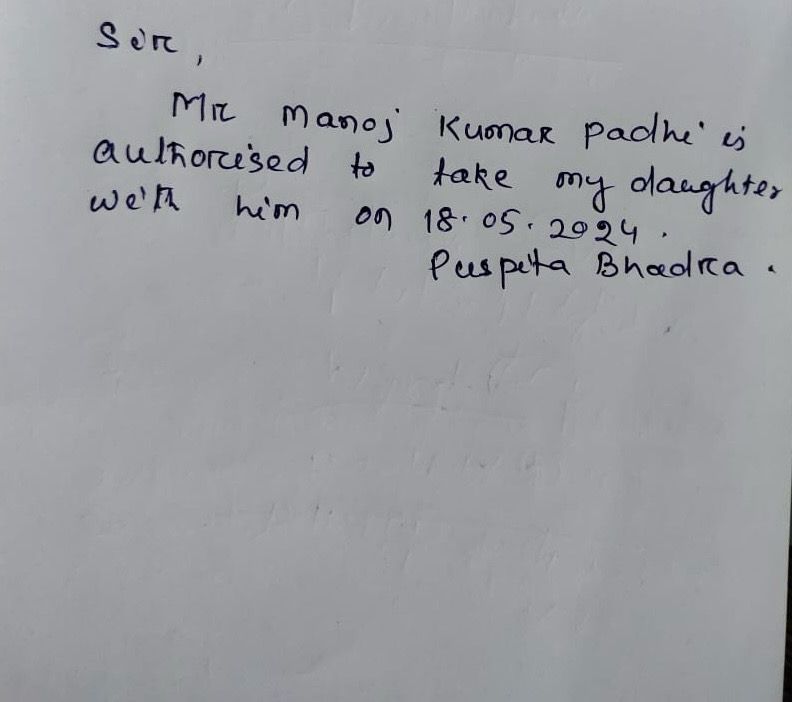 Sir,
Mr Manoj Kumar Padhi is
authorised to take my daughter
with him on 18.05.2024.
Puspita Bhadra.